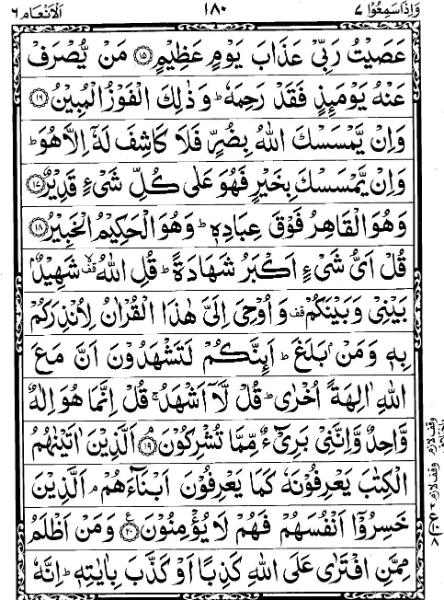 وَاِذَاسَمِعُوْا ٧ ١٨٠ اَلْاَنْعَام ٦
عَصَيْتُ رَبِّىْ عَذَابَ يَوْمٍ عَظِيْمٍ ۝١٥ مَنْ يُّصْرَفْ
عَنْهُ يَوْمَئِذٍ فَقَدْ رَحِمَهٗ ؕ وَذٰلِكَ الْفَوْزُ الْمُبِيْنُ ۝١٦
وَاِنْ يَّمْسَسْكَ اللّٰهُ بِضُرٍّ فَلَا كَاشِفَ لَهٗۤ اِلَّا هُوَ ؕ
وَاِنْ يَّمْسَسْكَ بِخَيْرٍ فَهُوَ عَلٰى كُلِّ شَىْءٍ قَدِيْرٌ ۝١٧
وَهُوَ الْقَاهِرُ فَوْقَ عِبَادِهٖ ؕ وَهُوَ الْحَكِيْمُ الْخَبِيْرُ ۝١٨
قُلْ اَىُّ شَىْءٍ اَكْبَرُ شَهَادَةً ؕ قُلِ اللّٰهُ قف شَهِيْدٌۢ
بَيْنِىْ وَبَيْنَكُمْ قف وَاُوْحِىَ اِلَىَّ هٰذَا الْقُرْاٰنُ لِاُنْذِرَكُمْ
بِهٖ وَمَنْۢ بَلَغَ ؕ اَئِنَّكُمْ لَتَشْهَدُوْنَ اَنَّ مَعَ
اللّٰهِ اٰلِهَةً اُخْرٰى ؕ قُلْ لَّاۤ اَشْهَدُ ۚ قُلْ اِنَّمَا هُوَ اِلٰهٌ
وَّاحِدٌ وَّاِنَّنِىْ بَرِىْٓءٌ مِّمَّا تُشْرِكُوْنَ ۝١٩ اَلَّذِيْنَ اٰتَيْنٰهُمُ
الْكِتٰبَ يَعْرِفُوْنَهٗ كَمَا يَعْرِفُوْنَ اَبْنَآءَهُمْ ۘ اَلَّذِيْنَ
خَسِرُوْۤا اَنْفُسَهُمْ فَهُمْ لَا يُؤْمِنُوْنَ ۝٢٠ ع وَمَنْ اَظْلَمُ
مِمَّنِ افْتَرٰى عَلَى اللّٰهِ كَذِبًا اَوْ كَذَّبَ بِاٰيٰتِهٖ ؕ اِنَّهٗ
وقف لازم
وقف لازم